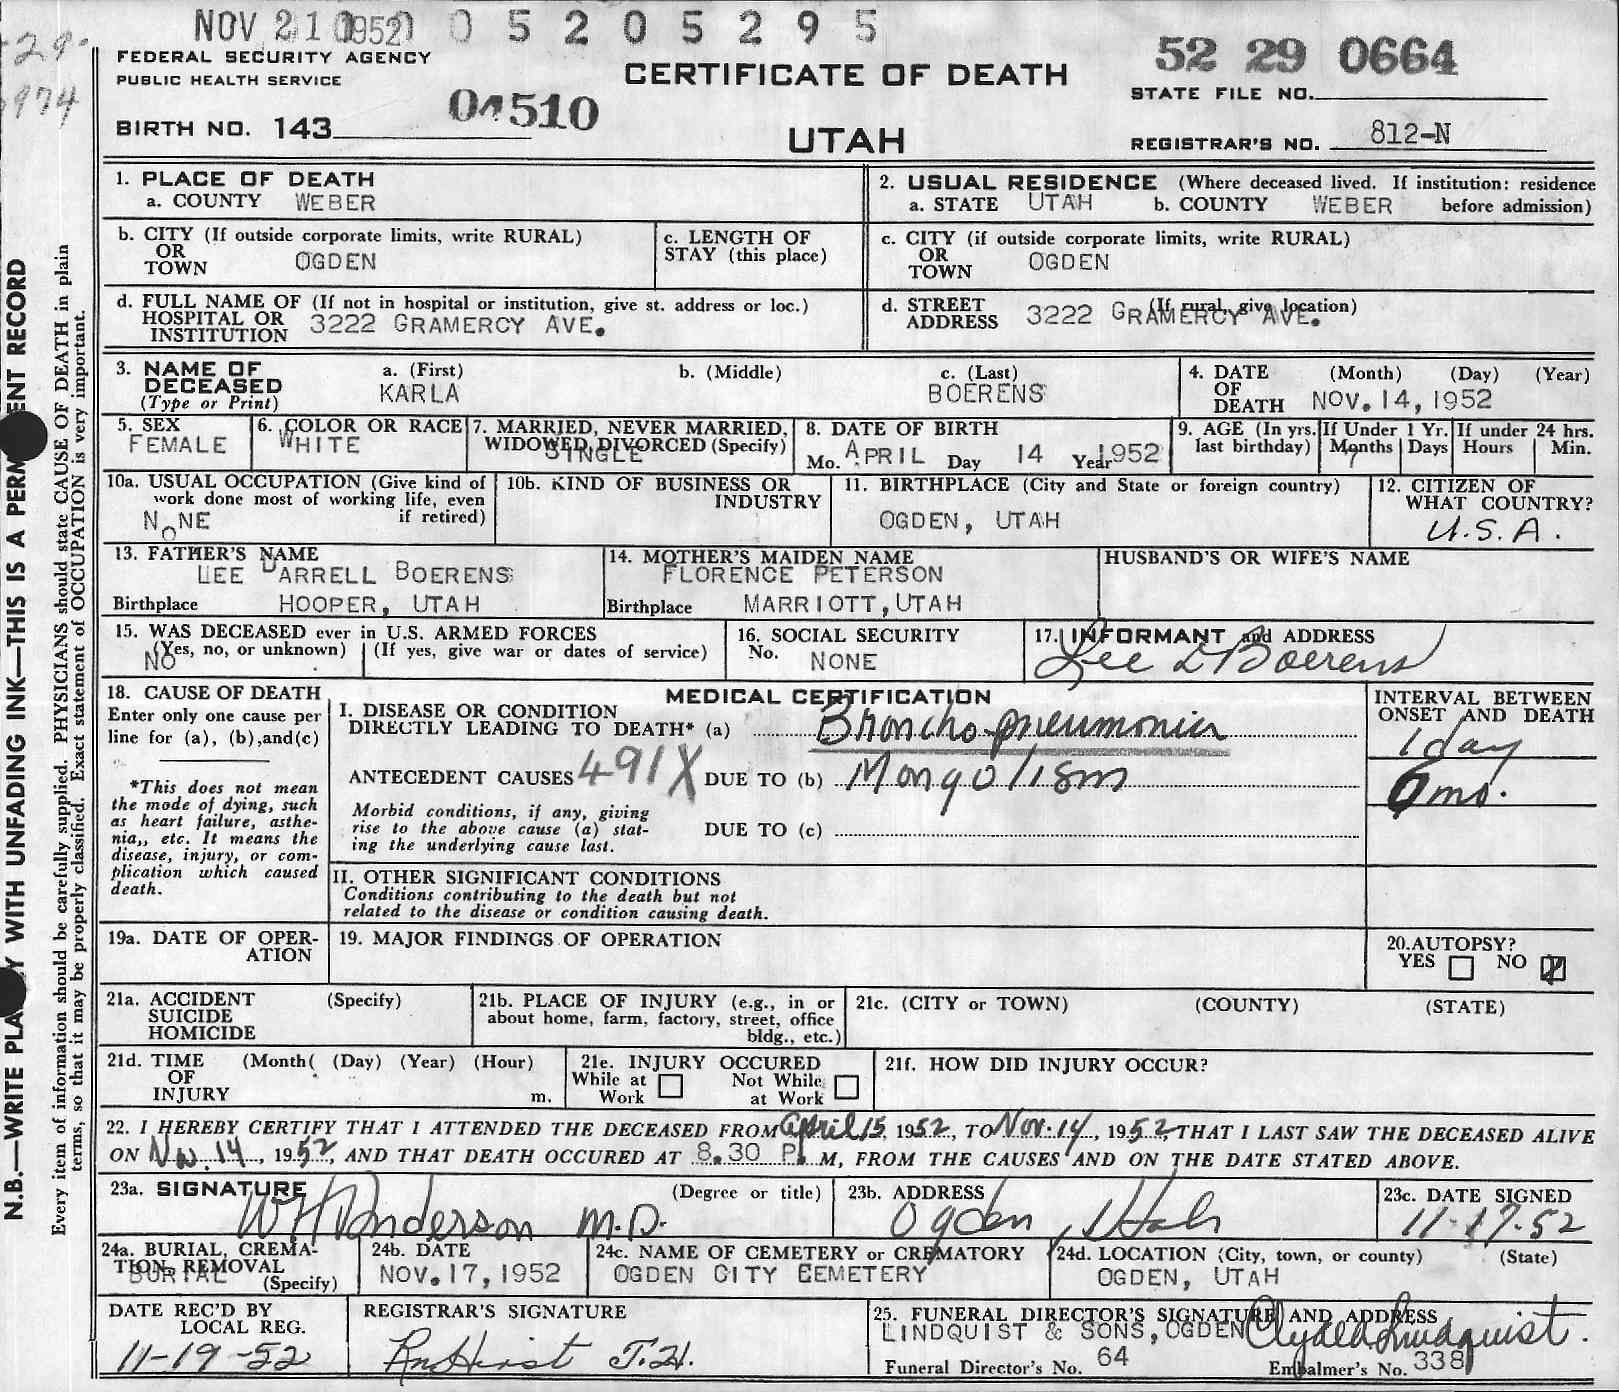 NOV 21 1952 0 5 2 0 5 2 9 5
29
974
FEDERAL SECURITY AGENCY
PUBLIC HEALTH SERVICE
CERTIFICATE OF DEATH
52 29 0664
STATE FILE NO.
BIRTH NO. 143
04510
UTAH
REGISTRAR'S NO. 812-N
N.B.—WRITE PLA Y WITH UNFADING INK—THIS IS A PERM ENT RECORD
Every item of information should be carefully supplied. PHYSICIANS should state CAUSE OF DEATH in plain
terms, so that it may be properly classified. Exact statement of OCCUPATION is very important.
1. PLACE OF DEATH
a. COUNTY WEBER
2. USUAL RESIDENCE (Where deceased lived. If institution: residence
a. STATE UTAH b. COUNTY WEBER before admission)
b. CITY (If outside corporate limits, write RURAL)
OR
TOWN OGDEN
c. LENGTH OF
STAY (this place)
c. CITY (if outside corporate limits, write RURAL)
OR
TOWN OGDEN
d. FULL NAME OF (If not in hospital or institution, give st. address or loc.)
HOSPITAL OR
INSTITUTION 3222 GRAMERCY AVE.
d. STREET (If rural, give location)
ADDRESS 3222 GRAMERCY AVE.
3. NAME OF
DECEASED
(Type or Print)
a. (First)
KARLA
b. (Middle)
c. (Last)
BOERENS
4. DATE (Month) (Day) (Year)
OF
DEATH NOV. 14, 1952
5. SEX
FEMALE
6. COLOR OR RACE
WHITE
7. MARRIED, NEVER MARRIED,
WIDOWED, DIVORCED (Specify)
SINGLE
8. DATE OF BIRTH
Mo. APRIL Day 14 Year 1952
9. AGE (In yrs.
last birthday)
If Under 1 Yr.
Months Days
7
If under 24 hrs.
Hours Min.
10a. USUAL OCCUPATION (Give kind of
work done most of working life, even
if retired)
NONE
10b. KIND OF BUSINESS OR
INDUSTRY
11. BIRTHPLACE (City and State or foreign country)
OGDEN, UTAH
12. CITIZEN OF
WHAT COUNTRY?
U.S.A.
13. FATHER'S NAME
LEE DARRELL BOERENS
Birthplace HOOPER, UTAH
14. MOTHER'S MAIDEN NAME
FLORENCE PETERSON
Birthplace MARRIOTT, UTAH
HUSBAND'S OR WIFE'S NAME
15. WAS DECEASED ever in U.S. ARMED FORCES
(Yes, no, or unknown) (If yes, give war or dates of service)
NO
16. SOCIAL SECURITY
No. NONE
17. INFORMANT and ADDRESS
Lee D Boerens
18. CAUSE OF DEATH
Enter only one cause per
line for (a), (b),and(c)
*This does not mean
the mode of dying, such
as heart failure, asthe-
nia,, etc. It means the
disease, injury, or com-
plication which caused
death.
MEDICAL CERTIFICATION
I. DISEASE OR CONDITION
DIRECTLY LEADING TO DEATH* (a) Broncho-pneumonia
ANTECEDENT CAUSES 491X DUE TO (b) Mongolism
Morbid conditions, if any, giving
rise to the above cause (a) stat-
ing the underlying cause last.
DUE TO (c)
II. OTHER SIGNIFICANT CONDITIONS
Conditions contributing to the death but not
related to the disease or condition causing death.
INTERVAL BETWEEN
ONSET AND DEATH
1 day
mo.
19a. DATE OF OPER-
ATION
19. MAJOR FINDINGS OF OPERATION
20.AUTOPSY?
YES NO
21a. ACCIDENT (Specify)
SUICIDE
HOMICIDE
21b. PLACE OF INJURY (e.g., in or
about home, farm, factory, street, office
bldg., etc.)
21c. (CITY or TOWN) (COUNTY) (STATE)
21d. TIME (Month( (Day) (Year) (Hour)
OF
INJURY m.
21e. INJURY OCCURED
While at Not While
Work at Work
21f. HOW DID INJURY OCCUR?
22. I HEREBY CERTIFY THAT I ATTENDED THE DECEASED FROM April 15, 1952, TO Nov. 14, 1952, THAT I LAST SAW THE DECEASED ALIVE
ON Nov. 14, 1952, AND THAT DEATH OCCURED AT 8.30 P. M, FROM THE CAUSES AND ON THE DATE STATED ABOVE.
23a. SIGNATURE (Degree or title)
W H Anderson M.D.
23b. ADDRESS
Ogden, Utah
23c. DATE SIGNED
11-17-52
24a. BURIAL, CREMA-
TION, REMOVAL
(Specify)
BURIAL
24b. DATE
NOV. 17, 1952
24c. NAME OF CEMETERY or CREMATORY
OGDEN CITY CEMETERY
24d. LOCATION (City, town, or county) (State)
OGDEN, UTAH
DATE REC'D BY
LOCAL REG.
11-19-52
REGISTRAR'S SIGNATURE
25. FUNERAL DIRECTOR'S SIGNATURE AND ADDRESS
LINDQUIST & SONS, OGDEN Clyde Lindquist.
Funeral Director's No. 64 Embalmer's No. 338